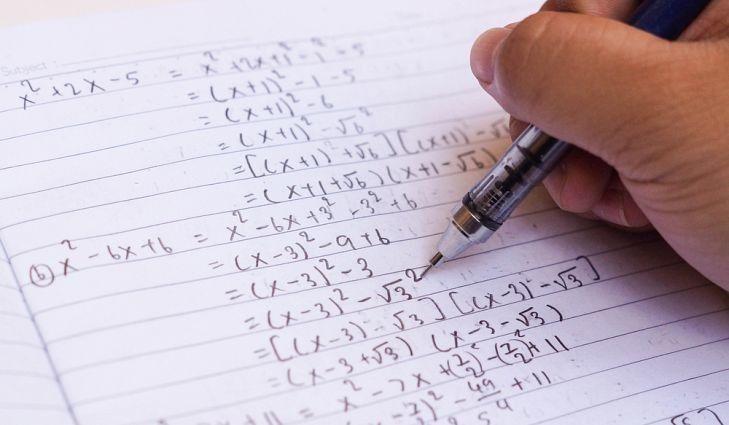 Subject
x² + 2x - 5 = x² + 2x + 1² - 1² - 5
= (x+1)² - 1 - 5
= (x+1)² - 6
= (x+1)² - √6²
= [(x+1) + √6] [(x+1) - √6
= (x+1+√6) (x+1-√6)
(b) x² - 6x + 6 = x² - 6x + 3² - 3² + 6
= (x-3)² - 9 + 6
= (x-3)² - 3
= (x-3)² - √3²
= [(x-3) - √3] [(x-3) - √3]
= (x-3+√3) (x-3-√3)
+ 11 = x² - 7x + (7/2)² - (7/2)² + 11
- 49/4 + 11